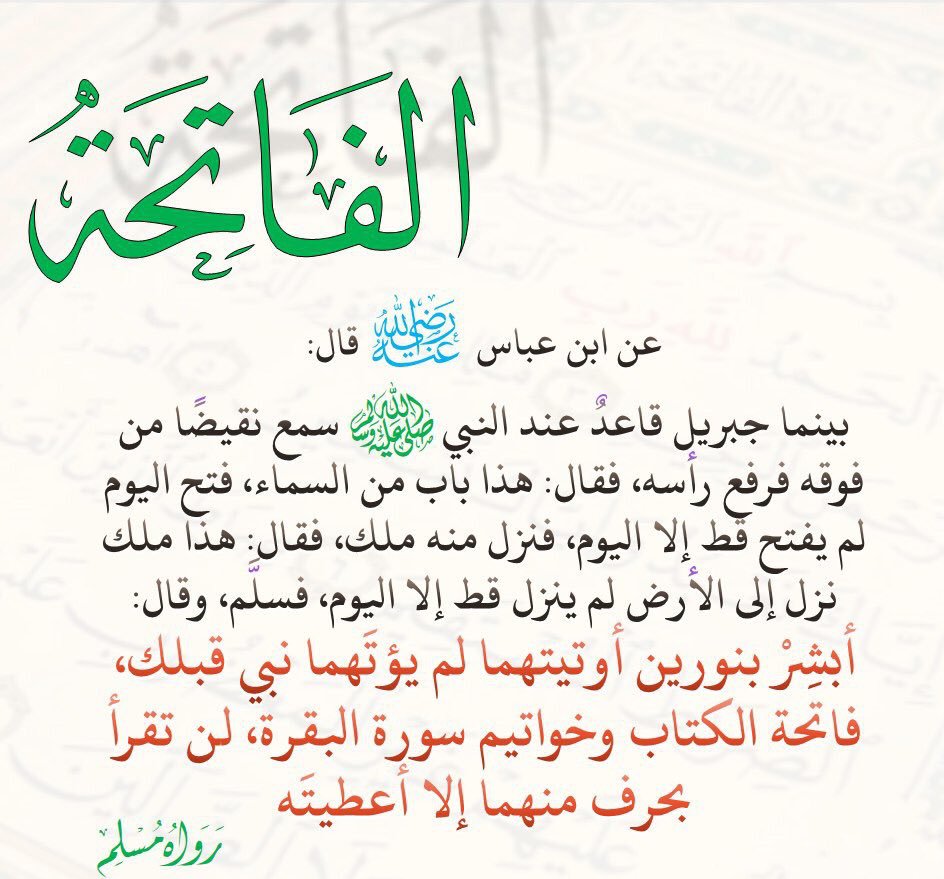 الفَاتِحَةُ
عن ابن عباس رضي الله عنه قال:
بينما جبريل قاعدٌ عند النبي صلى الله عليه وسلم سمع نقيضًا من
فوقه فرفع رأسه، فقال: هذا باب من السماء، فتح اليوم
لم يفتح قط إلا اليوم، فنزل منه ملك، فقال: هذا ملك
نزل إلى الأرض لم ينزل قط إلا اليوم، فسلَّم، وقال:
أبشِرْ بنورين أوتيتهما لم يؤتَهما نبي قبلك،
فاتحة الكتاب وخواتيم سورة البقرة، لن تقرأ
بحرف منهما إلا أعطيتَه
رَوَاهُ مُسْلِم